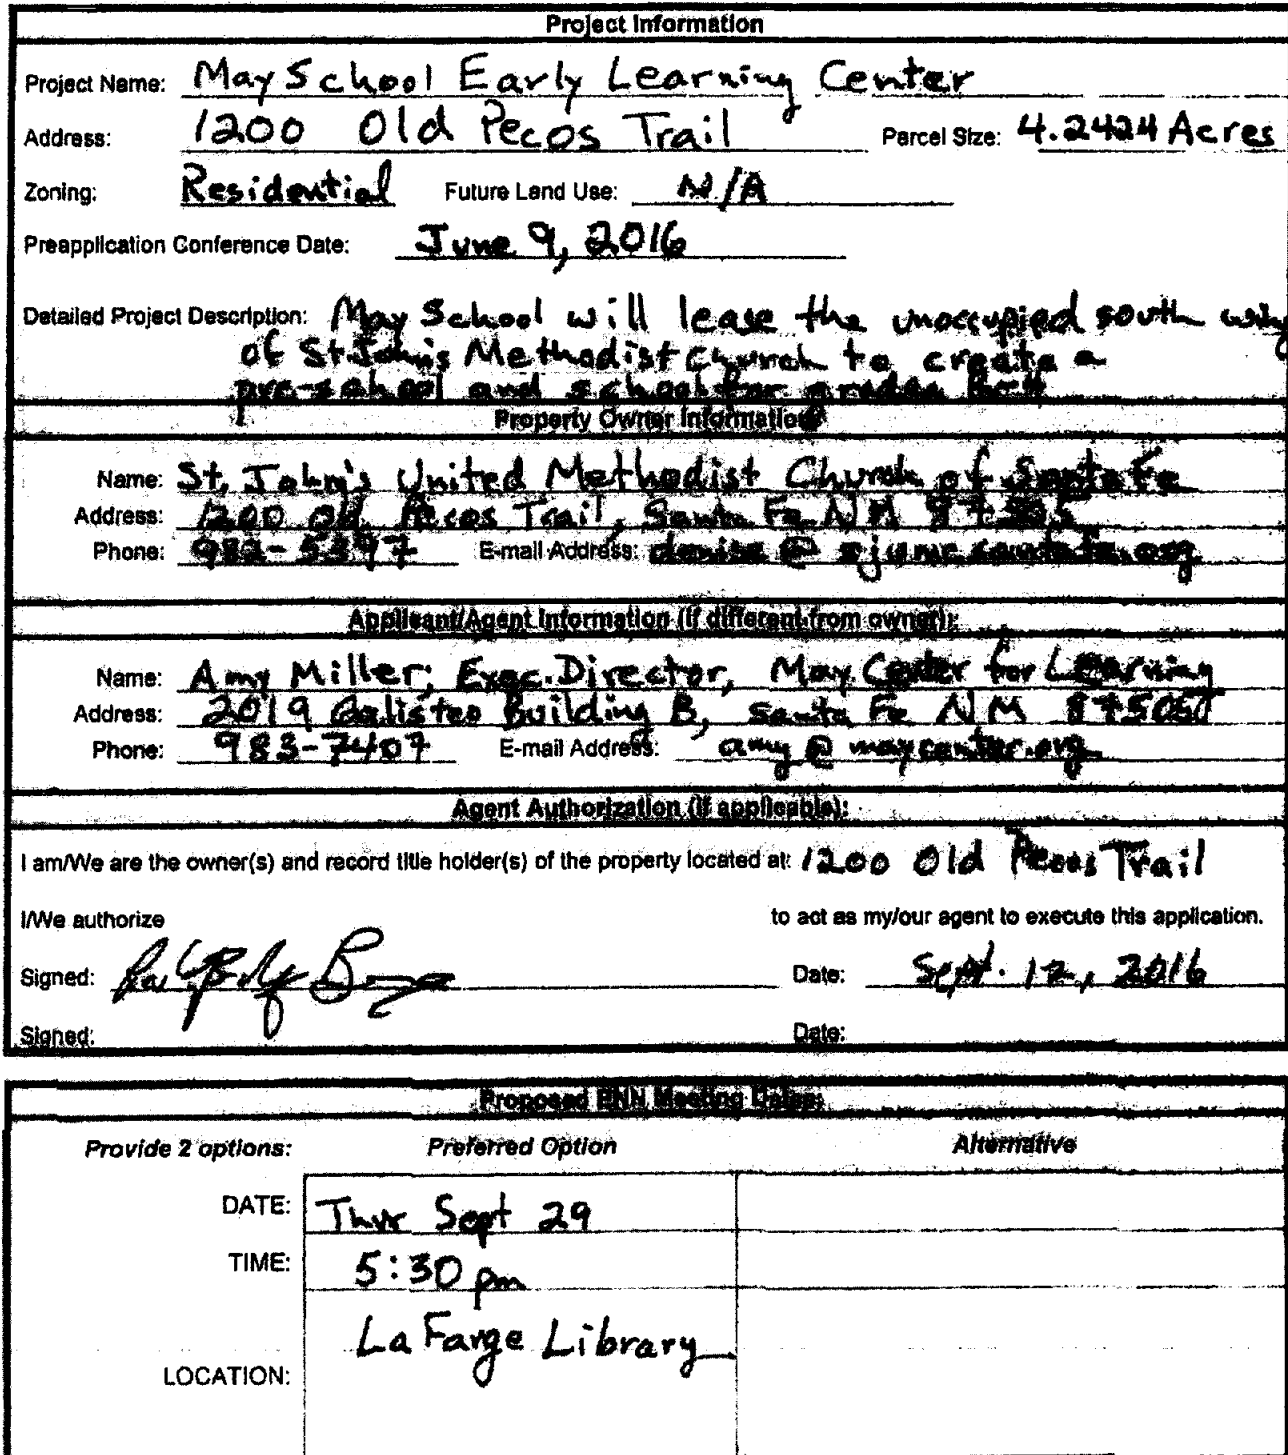 Project Information
Project Name: May School Early Learning Center
Address: 1200 Old Pecos Trail Parcel Size: 4.2424 Acres
Zoning: Residential Future Land Use: N/A
Preapplication Conference Date: June 9, 2016
Detailed Project Description: May School will lease the unoccupied south wing
of St John's Methodist Church to create a
pre-school and school for grades
Property Owner Information
Name: St. John's United Methodist Church of Santa Fe
Address: 1200 Old Pecos Trail, Santa Fe NM 87505
Phone: 982-5397 E-mail Address: denise@
Applicant/Agent Information (if different from owner):
Name: Amy Miller; Exec. Director, May Center for Learning
Address: 2019 Galisteo Building B, Santa Fe NM 87505
Phone: 983-7407 E-mail Address: amy@maycenter.org
Agent Authorization (if applicable):
I am/We are the owner(s) and record title holder(s) of the property located at: 1200 Old Pecos Trail
I/We authorize to act as my/our agent to execute this application.
Signed: Date: Sept. 12, 2016
Signed: Date:
Proposed ENN Meeting Dates:
Provide 2 options: Preferred Option Alternative
DATE: Thur Sept 29
TIME: 5:30 pm
LOCATION: La Farge Library